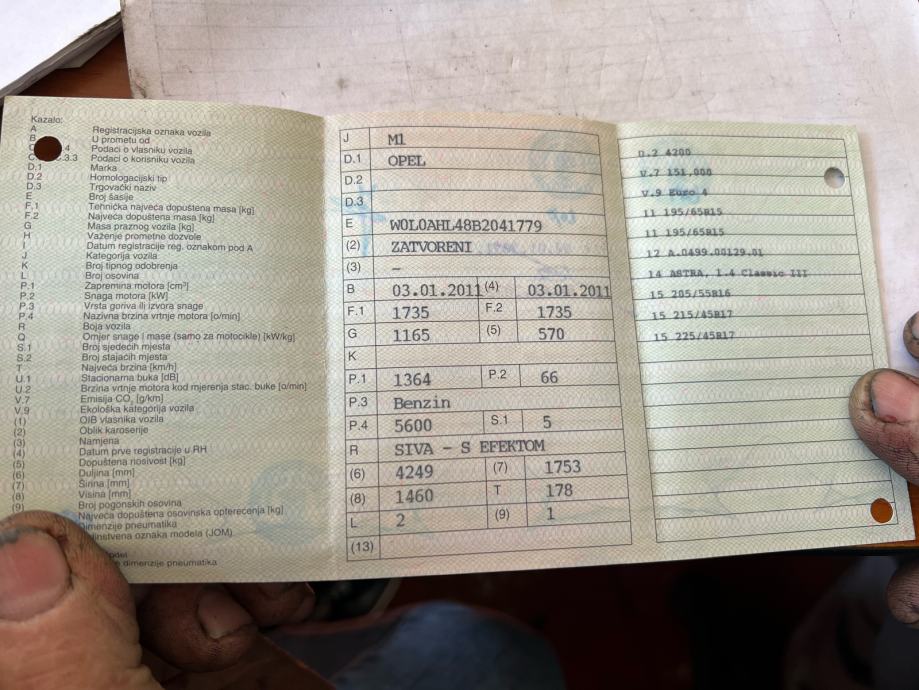 Kazalo:
A Registracijska oznaka vozila
B U prometu od
4 Podaci o vlasniku vozila
.3.3 Podaci o korisniku vozila
D.1 Marka
D.2 Homologacijski tip
D.3 Trgovački naziv
E Broj šasije
F.1 Tehnička najveća dopuštena masa [kg]
F.2 Najveća dopuštena masa [kg]
G Masa praznog vozila [kg]
H Važenje prometne dozvole
I Datum registracije reg. oznakom pod A
J Kategorija vozila
K Broj tipnog odobrenja
L Broj osovina
P.1 Zapremina motora [cm³]
P.2 Snaga motora [kW]
P.3 Vrsta goriva ili izvora snage
P.4 Nazivna brzina vrtnje motora [o/min]
R Boja vozila
Q Omjer snage i mase (samo za motocikle) [kW/kg]
S.1 Broj sjedećih mjesta
S.2 Broj stajaćih mjesta
T Najveća brzina [km/h]
U.1 Stacionarna buka [dB]
U.2 Brzina vrtnje motora kod mjerenja stac. buke [o/min]
V.7 Emisija CO₂ [g/km]
V.9 Ekološka kategorija vozila
(1) OIB vlasnika vozila
(2) Oblik karoserije
(3) Namjena
(4) Datum prve registracije u RH
(5) Dopuštena nosivost [kg]
(6) Duljina [mm]
(7) Širina [mm]
(8) Visina [mm]
(9) Broj pogonskih osovina
Najveća dopuštena osovinska opterećenja [kg]
Dimenzije pneumatika
oznaka modela (JOM)
dimenzije pneumatika
J M1
D.1 OPEL
D.2
D.3
E W0L0AHL48B2041779
(2) ZATVORENI
(3) –
B 03.01.2011 (4) 03.01.2011
F.1 1735 F.2 1735
G 1165 (5) 570
K
P.1 1364 P.2 66
P.3 Benzin
P.4 5600 S.1 5
R SIVA – S EFEKTOM
(6) 4249 (7) 1753
(8) 1460 T 178
L 2 (9) 1
(13)
D.2 4200
V.7 151,000
V.9 Euro 4
11 195/65R15
11 195/65R15
12 A.0499.00129.01
14 ASTRA, 1.4 Classic III
15 205/55R16
15 215/45R17
15 225/45R17